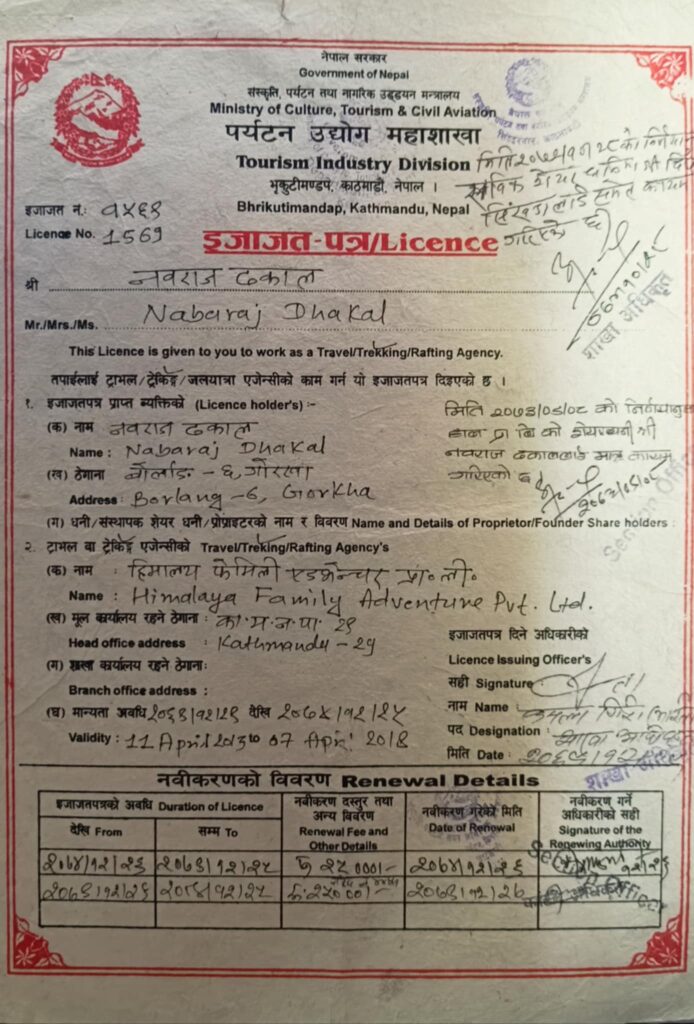 नेपाल सरकार
Government of Nepal
संस्कृति, पर्यटन तथा नागरिक उड्डयन मन्त्रालय
Ministry of Culture, Tourism & Civil Aviation
पर्यटन उद्योग महाशाखा
Tourism Industry Division
भृकुटीमण्डप, काठमाडौं, नेपाल ।
Bhrikutimandap, Kathmandu, Nepal
इजाजत नं.: १५६९
Licence No. 1569
इजाजत-पत्र/Licence
गरिएको छ
शाखा अधिकृत
श्री नवराज ढकाल
Mr./Mrs./Ms. Nabaraj Dhakal
This Licence is given to you to work as a Travel/Trekking/Rafting Agency.
तपाईलाई ट्राभल/ट्रेकिङ्ग/जलयात्रा एजेन्सीको काम गर्न यो इजाजतपत्र दिइएको छ ।
१. इजाजतपत्र प्राप्त ब्यक्तिको (Licence holder's) :-
(क) नाम नवराज ढकाल
Name : Nabaraj Dhakal
(ख) ठेगाना बोर्लाङ - ६, गोरखा
Address : Borlang - 6, Gorkha
मिति २०७३/०८/०८ को
नवराज ढकाललाई मात्र कायम
गरिएको छ
Section Officer
(ग) धनी/संस्थापक शेयर धनी/प्रोप्राइटरको नाम र विवरण Name and Details of Proprietor/Founder Share holders :
२. ट्राभल वा ट्रेकिङ्ग एजेन्सीको Travel/Treking/Rafting Agency's
(क) नाम : हिमालय फेमिली एडभेन्चर प्रा. ली.
Name : Himalaya Family Adventure Pvt. Ltd.
(ख) मूल कार्यालय रहने ठेगाना : का.म.न.पा. २९
Head office address : Kathmandu - 29
(ग) शाखा कार्यालय रहने ठेगानाः
Branch office address :
(घ) मान्यता अवधि २०६९/१२/२९ देखि २०७४/१२/२५
Validity : 11 April 2013 to 07 April 2018
इजाजतपत्र दिने अधिकारीको
Licence Issuing Officer's
सही Signature :
नाम Name : कमला गिरी
पद Designation : शाखा अधिकृत
मिति Date :
शाखा अधिकृत
नवीकरणको विवरण Renewal Details
इजाजतपत्रको अवधि Duration of Licence
देखि From
सम्म To
नवीकरण दस्तुर तथा अन्य विवरण
Renewal Fee and Other Details
नवीकरण गरेको मिति
Date of Renewal
नवीकरण गर्ने अधिकारीको सही
Signature of the Renewing Authority
२०७४/१२/२६ २०७९/१२/२५ रु २५०००/- २०७४/१२/२६
२०७९/१२/२६ २०८४/१२/२५ रु. २५०००/- २०७९/१२/२८